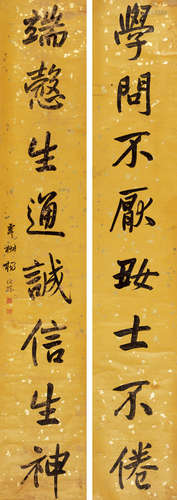 學問不厭好士不倦
端愨生通誠信生神